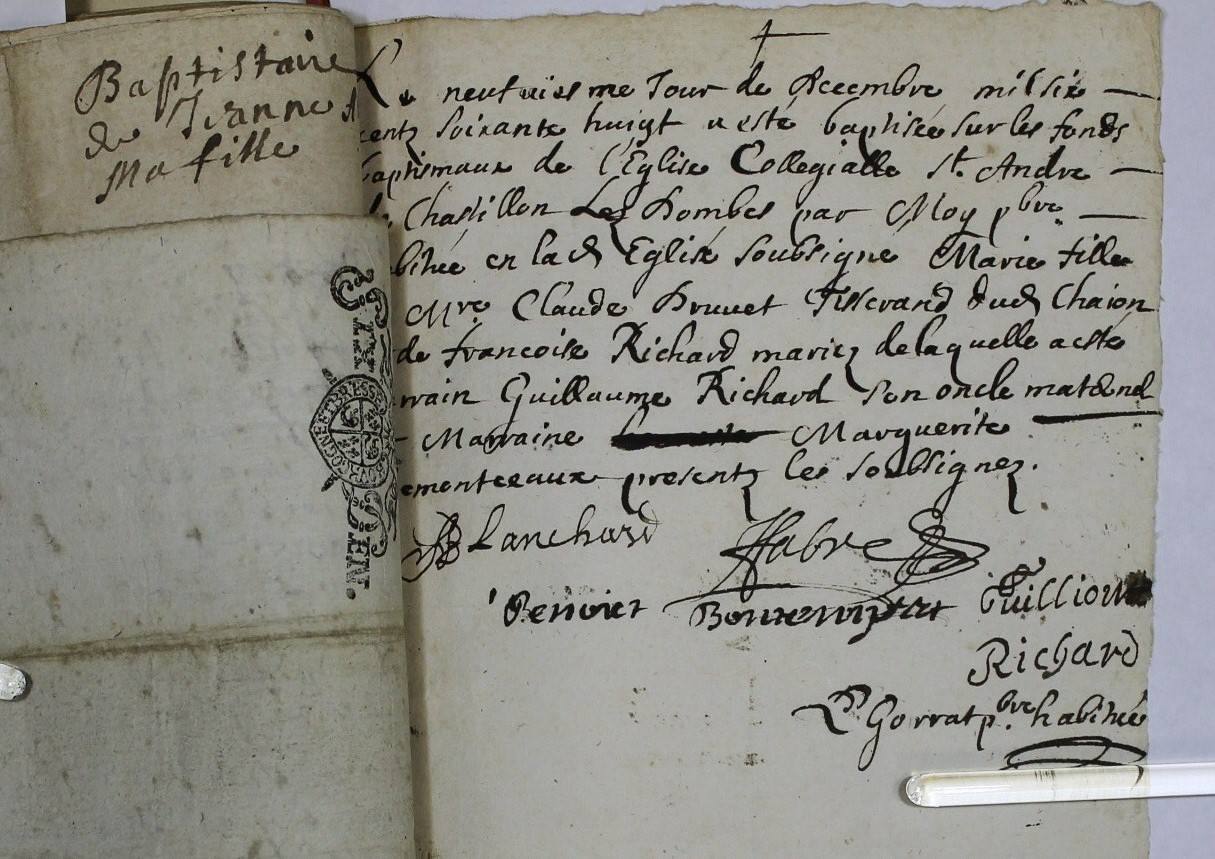 Baptistaire
de Jeanne
Ma fille
Le neufuiesme Jour de Decembre mil six
centz soixante huigt a esté baptisée sur les fonds
baptismaux de l'Eglise Collegialle St. Andre
de Chastillon Les Dombes par Moy pbre
bituée en lad Eglise soubsigne Marie fille
Mre Claude Bruuet Tisserand dud Chaion
de francoise Richard mariez de laquelle a esté
rrain Guillaume Richard son oncle maternel
Marraine Marguerite
emonteeaux presentz les soubsignez.
Blanchard Fabre
Benoict Guilliome
Richard
Gorrat pbre habitué
GEN.